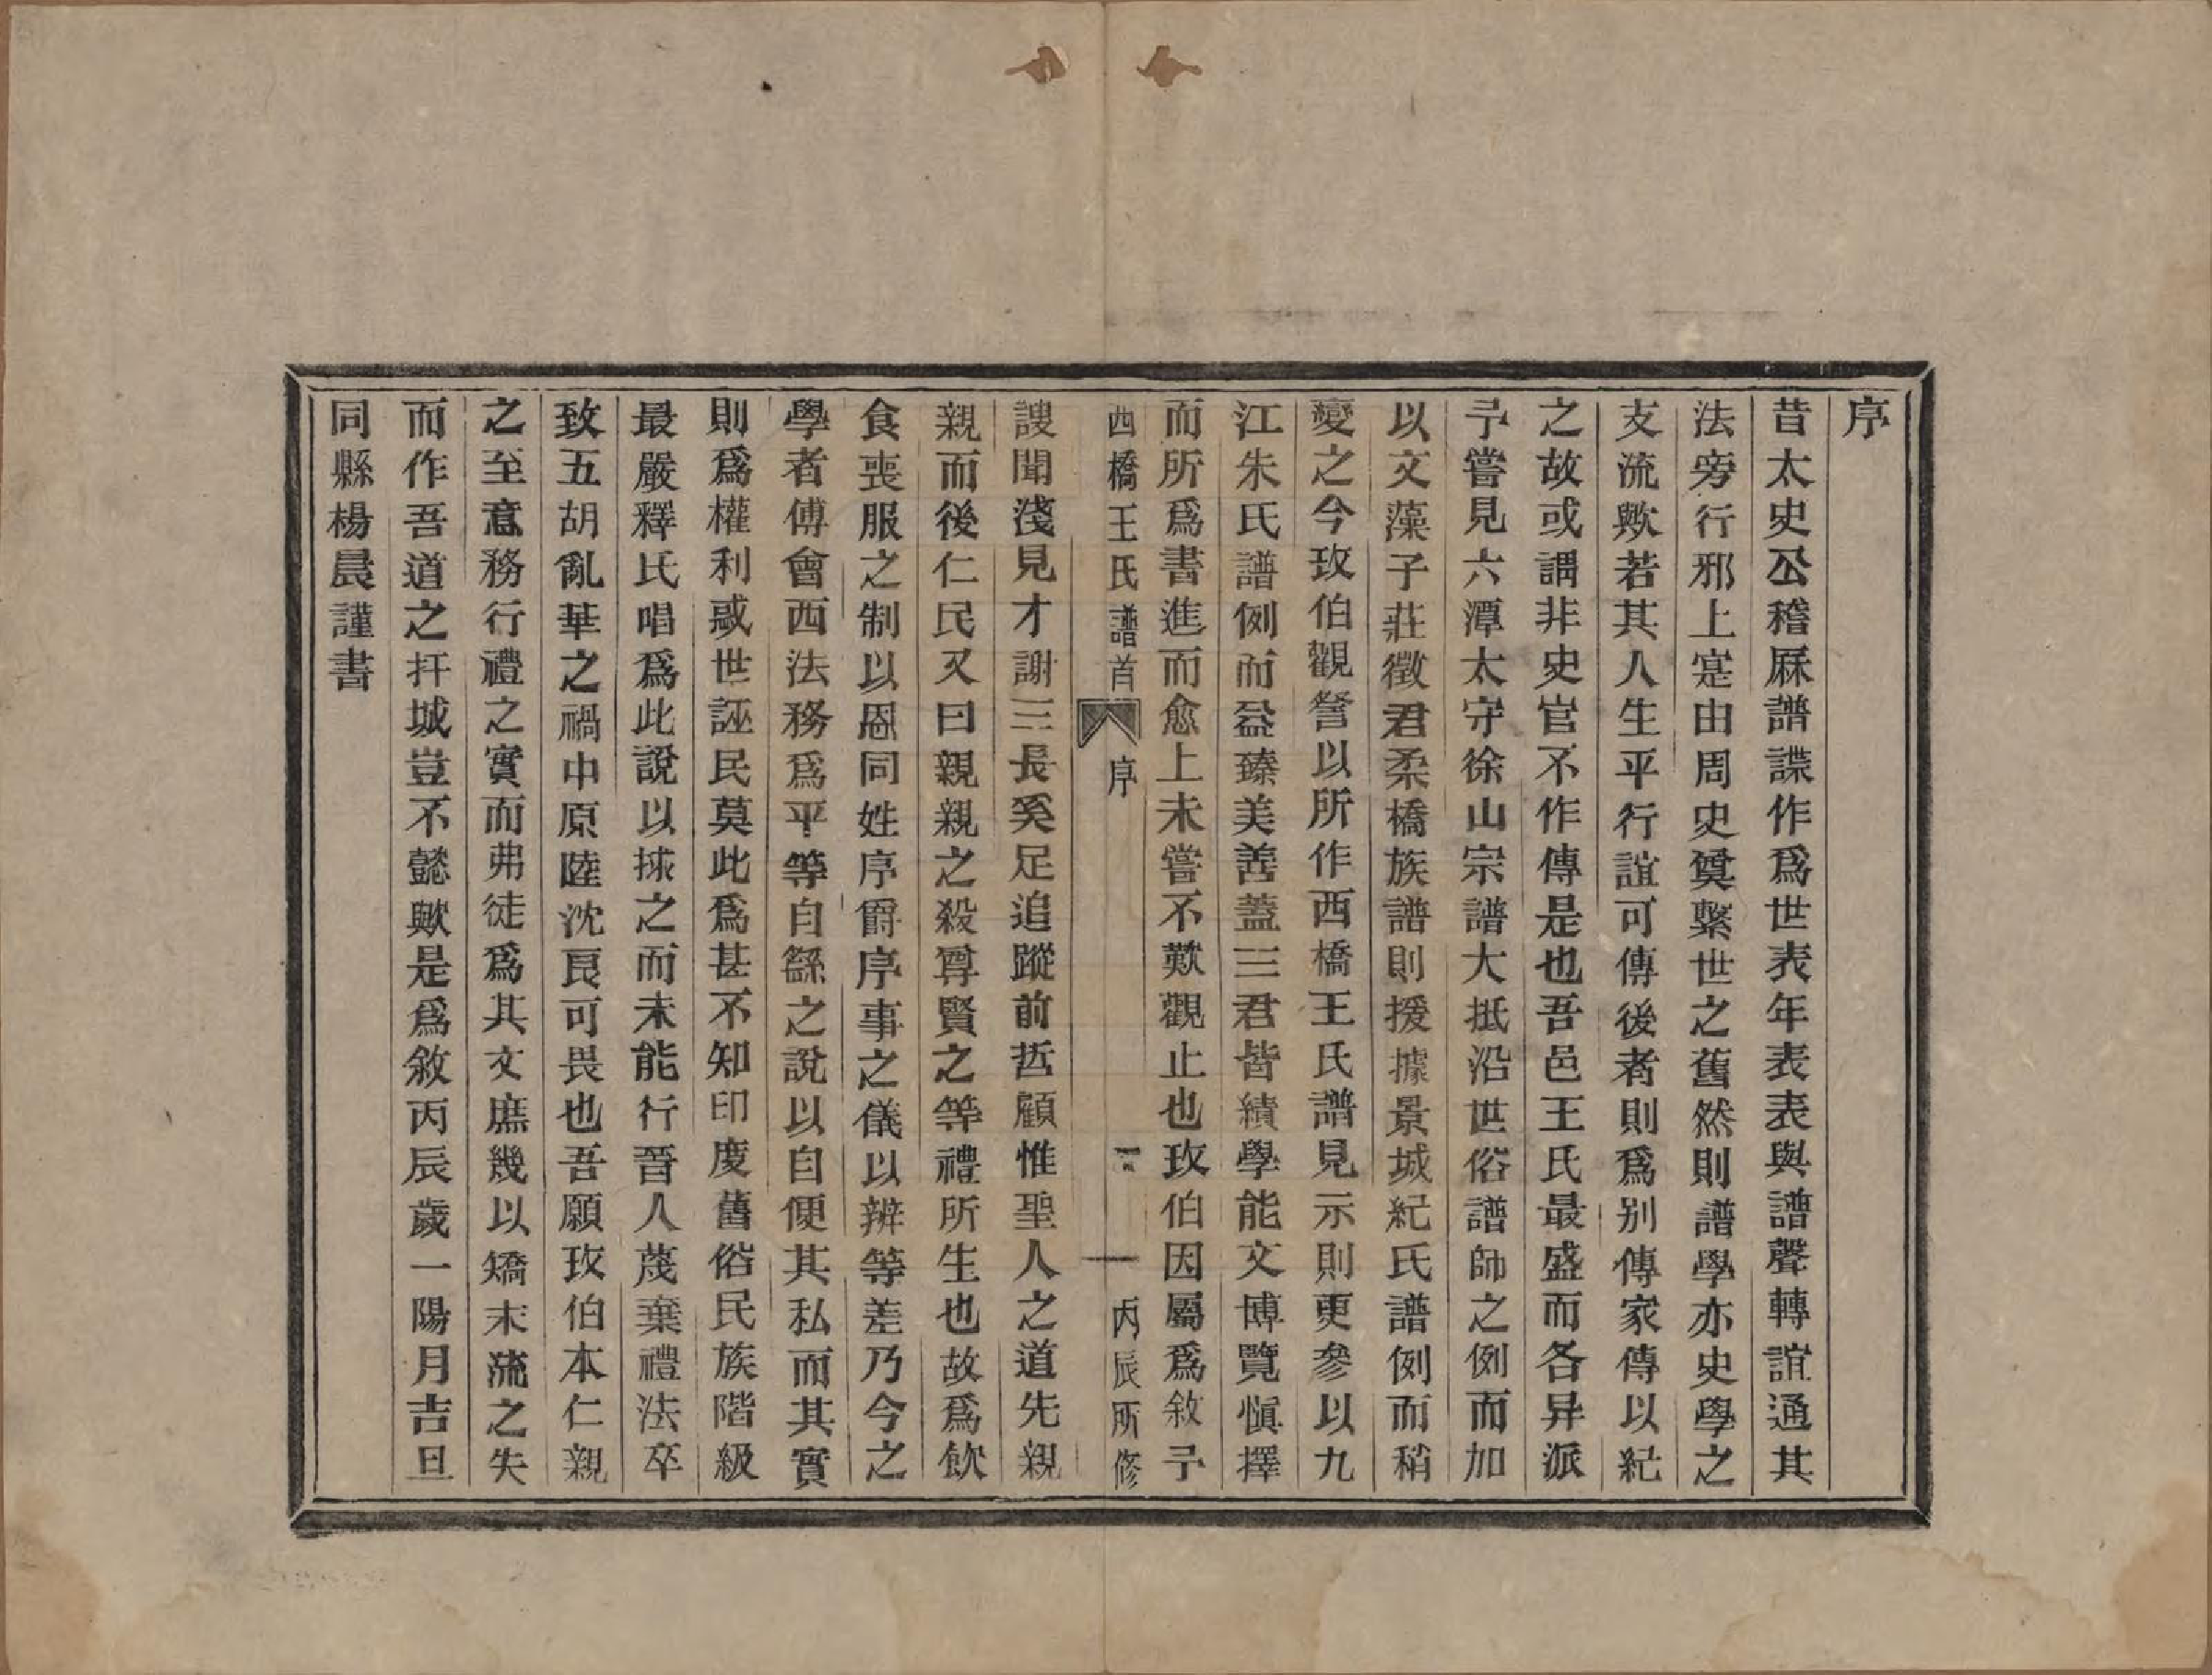 序
昔太史公稽厤譜諜作爲世表年表表與譜聲轉誼通其
法旁行邪上寔由周史奠繫世之舊然則譜學亦史學之
支流歟若其人生平行誼可傳後者則爲别傳家傳以紀
之故或謂非史官不作傳是也吾邑王氏最盛而各异派
予嘗見六潭太守徐山宗譜大抵沿世俗譜師之例而加
以文藻子莊徵君柔橋族譜則援據景城紀氏譜例而稍
變之今玫伯觀詧以所作西橋王氏譜見示則更參以九
江朱氏譜例而益臻美善蓋三君皆績學能文博覽愼擇
而所爲書進而愈上未嘗不歎觀止也玫伯因屬爲敘予
西橋王氏譜首 序 一 丙辰所修
謏聞淺見才謝三長奚足追蹤前哲顧惟聖人之道先親
親而後仁民又曰親親之殺尊賢之等禮所生也故爲飲
食喪服之制以恩同姓序爵序事之儀以辨等差乃今之
學者傅會西法務爲平等自繇之說以自便其私而其實
則爲權利惑世誣民莫此爲甚不知印度舊俗民族階級
最嚴釋氏唱爲此說以捄之而未能行晉人蔑棄禮法卒
致五胡亂華之禍中原陸沈良可畏也吾願玫伯本仁親
之至意務行禮之實而弗徒爲其文庶幾以矯末流之失
而作吾道之扞城豈不懿歟是爲敘丙辰歲一陽月吉旦
同縣楊晨謹書